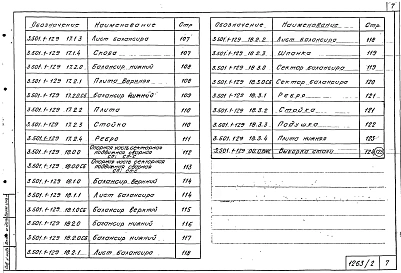 7
Обозначение Наименование Стр
3.501.1-129 17.1.3 Лист балансира 107
3.501.1-129 17.1.4 Скоба 107
3.501.1-129 17.2.0 Балансир нижний 108
3.501.1-129 17.2.1 Плита верхняя 108
3.501.1-129 17.2.0СБ Балансир нижний 109
3.501.1-129 17.2.2 Плита 110
3.501.1-129 17.2.3 Стойка 110
3.501.1-129 17.2.4 Ребро 111
3.501.1-129 18.0.0 Опорная часть секторная подвижная сборная 112
3.501.1-129 18.0.0СБ Опорная часть секторная подвижная сборная 113
3.501.1-129 18.1.0 Балансир верхний 114
3.501.1-129 18.1.1 Лист балансира 114
3.501.1-129 18.1.0СБ Балансир верхний 115
3.501.1-129 18.2.0 Балансир нижний 116
3.501.1-129 18.2.0СБ Балансир нижний 117
3.501.1-129 18.2.1 Лист балансира 118
Обозначение Наименование Стр
3.501.1-129 18.2.2 Лист балансира 118
3.501.1-129 18.2.3 Шпонка 119
3.501.1-129 18.3.0 Сектор балансира 119
3.501.1-129 18.3.0СБ Сектор балансира 120
3.501.1-129 18.3.1 Ребро 121
3.501.1-129 18.3.2 Стойка 121
3.501.1-129 18.3.3 Подушка 122
3.501.1-129 18.3.4 Плита нижняя 123
3.501.1-129 00.0ВМС Выборка стали
1263/2 7